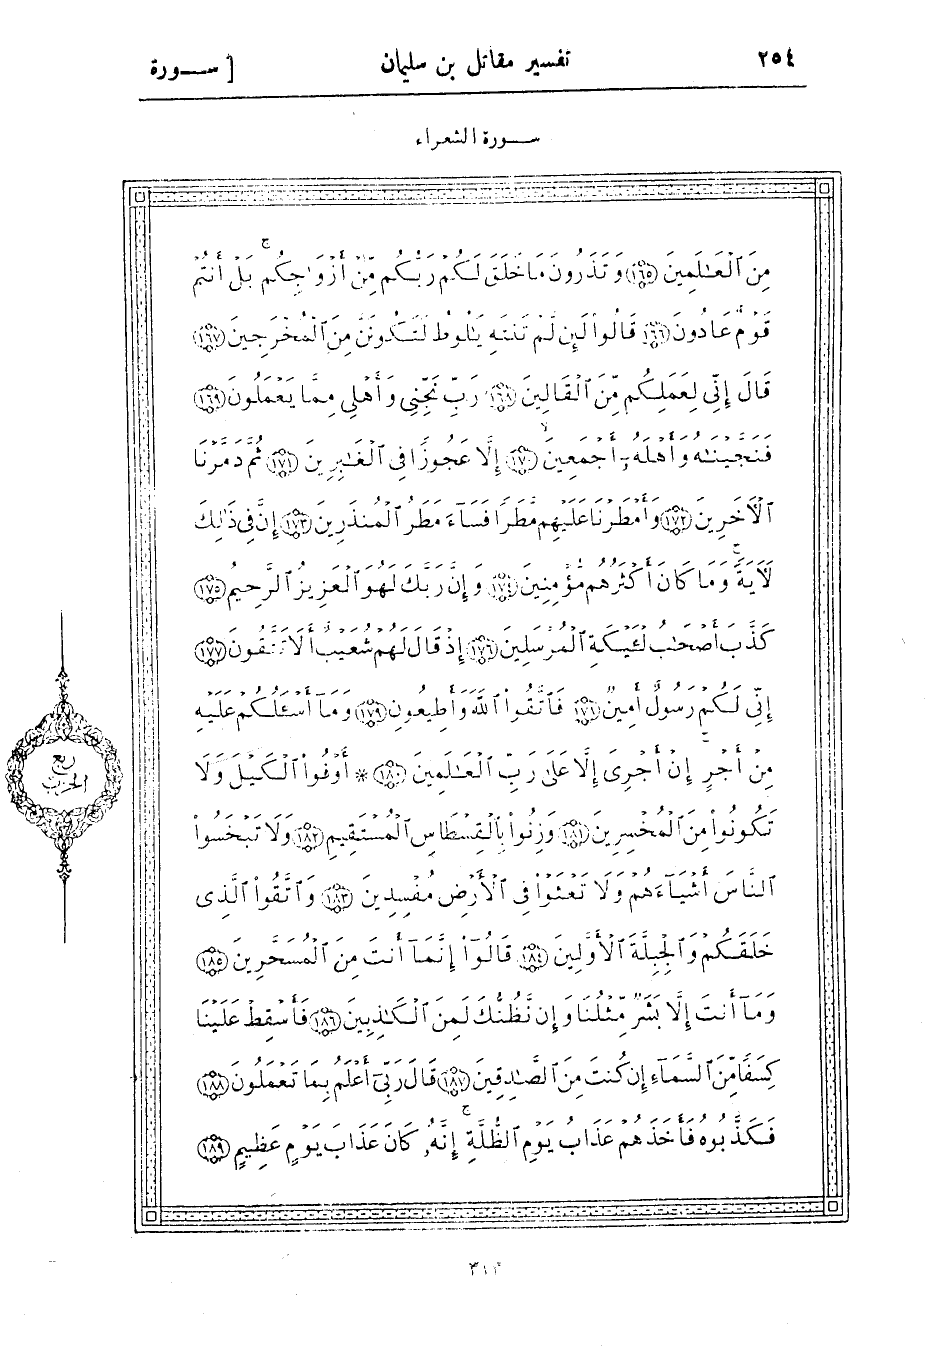 ٢٥٤ تفسير مقاتل بن سليمان [ سـورة
سـورة الشعراء
مِنَ ٱلْعَٰلَمِينَ ﴿١٦٥﴾ وَتَذَرُونَ مَا خَلَقَ لَكُمْ رَبُّكُم مِّنْ أَزْوَٰجِكُم ۚ بَلْ أَنتُمْ
قَوْمٌ عَادُونَ ﴿١٦٦﴾ قَالُوا۟ لَئِن لَّمْ تَنتَهِ يَٰلُوطُ لَتَكُونَنَّ مِنَ ٱلْمُخْرَجِينَ ﴿١٦٧﴾
قَالَ إِنِّى لِعَمَلِكُم مِّنَ ٱلْقَالِينَ ﴿١٦٨﴾ رَبِّ نَجِّنِى وَأَهْلِى مِمَّا يَعْمَلُونَ ﴿١٦٩﴾
فَنَجَّيْنَٰهُ وَأَهْلَهُۥٓ أَجْمَعِينَ ﴿١٧٠﴾ إِلَّا عَجُوزًا فِى ٱلْغَٰبِرِينَ ﴿١٧١﴾ ثُمَّ دَمَّرْنَا
ٱلْأَخَرِينَ ﴿١٧٢﴾ وَأَمْطَرْنَا عَلَيْهِم مَّطَرًا فَسَآءَ مَطَرُ ٱلْمُنذَرِينَ ﴿١٧٣﴾ إِنَّ فِى ذَٰلِكَ
لَأَيَةً ۖ وَمَا كَانَ أَكْثَرُهُم مُّؤْمِنِينَ ﴿١٧٤﴾ وَإِنَّ رَبَّكَ لَهُوَ ٱلْعَزِيزُ ٱلرَّحِيمُ ﴿١٧٥﴾
كَذَّبَ أَصْحَٰبُ لْـَٔيْكَةِ ٱلْمُرْسَلِينَ ﴿١٧٦﴾ إِذْ قَالَ لَهُمْ شُعَيْبٌ أَلَا تَتَّقُونَ ﴿١٧٧﴾
إِنِّى لَكُمْ رَسُولٌ أَمِينٌ ﴿١٧٨﴾ فَٱتَّقُوا۟ ٱللَّهَ وَأَطِيعُونِ ﴿١٧٩﴾ وَمَآ أَسْـَٔلُكُمْ عَلَيْهِ
مِنْ أَجْرٍ ۖ إِنْ أَجْرِىَ إِلَّا عَلَىٰ رَبِّ ٱلْعَٰلَمِينَ ﴿١٨٠﴾ * أَوْفُوا۟ ٱلْكَيْلَ وَلَا
تَكُونُوا۟ مِنَ ٱلْمُخْسِرِينَ ﴿١٨١﴾ وَزِنُوا۟ بِٱلْقِسْطَاسِ ٱلْمُسْتَقِيمِ ﴿١٨٢﴾ وَلَا تَبْخَسُوا۟
ٱلنَّاسَ أَشْيَآءَهُمْ وَلَا تَعْثَوْا۟ فِى ٱلْأَرْضِ مُفْسِدِينَ ﴿١٨٣﴾ وَٱتَّقُوا۟ ٱلَّذِى
خَلَقَكُمْ وَٱلْجِبِلَّةَ ٱلْأَوَّلِينَ ﴿١٨٤﴾ قَالُوٓا۟ إِنَّمَآ أَنتَ مِنَ ٱلْمُسَحَّرِينَ ﴿١٨٥﴾
وَمَآ أَنتَ إِلَّا بَشَرٌ مِّثْلُنَا وَإِن نَّظُنُّكَ لَمِنَ ٱلْكَٰذِبِينَ ﴿١٨٦﴾ فَأَسْقِطْ عَلَيْنَا
كِسَفًا مِّنَ ٱلسَّمَآءِ إِن كُنتَ مِنَ ٱلصَّٰدِقِينَ ﴿١٨٧﴾ قَالَ رَبِّىٓ أَعْلَمُ بِمَا تَعْمَلُونَ ﴿١٨٨﴾
فَكَذَّبُوهُ فَأَخَذَهُمْ عَذَابُ يَوْمِ ٱلظُّلَّةِ ۚ إِنَّهُۥ كَانَ عَذَابَ يَوْمٍ عَظِيمٍ ﴿١٨٩﴾
ربع
الحزب